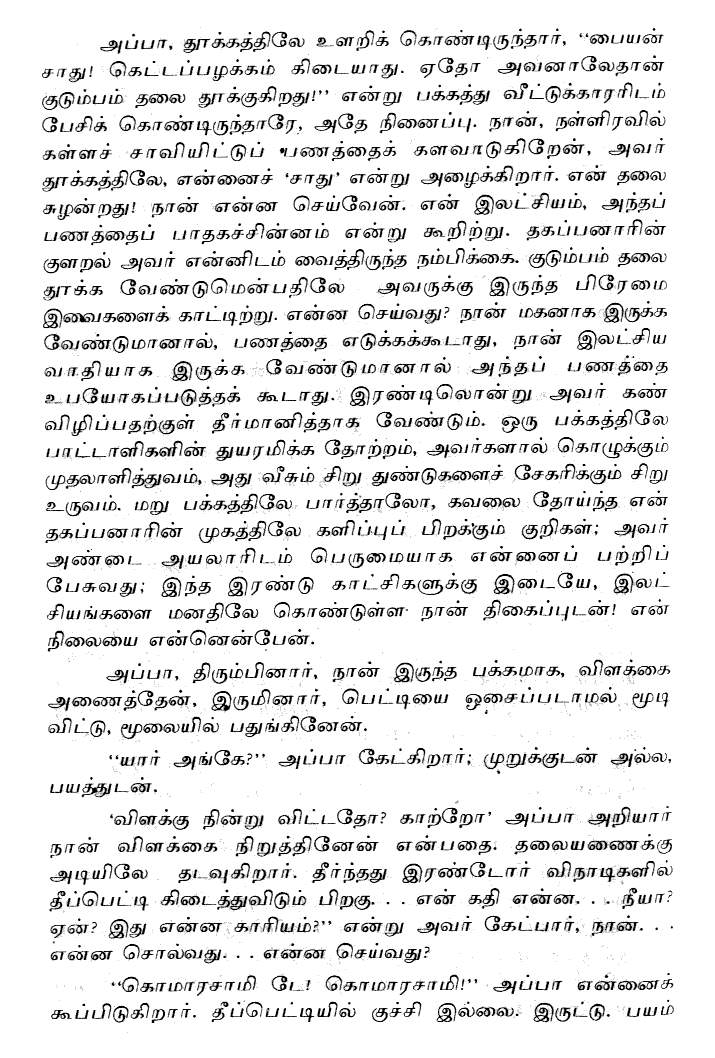 அப்பா, தூக்கத்திலே உளறிக் கொண்டிருந்தார், “பையன்
சாது! கெட்டப்பழக்கம் கிடையாது. ஏதோ அவனாலேதான்
குடும்பம் தலை தூக்குகிறது!” என்று பக்கத்து வீட்டுக்காரரிடம்
பேசிக் கொண்டிருந்தாரே, அதே நினைப்பு. நான், நள்ளிரவில்
கள்ளச் சாவியிட்டுப் பணத்தைக் களவாடுகிறேன், அவர்
தூக்கத்திலே, என்னைச் ‘சாது’ என்று அழைக்கிறார். என் தலை
சுழன்றது! நான் என்ன செய்வேன். என் இலட்சியம், அந்தப்
பணத்தைப் பாதகச்சின்னம் என்று கூறிற்று. தகப்பனாரின்
குளறல் அவர் என்னிடம் வைத்திருந்த நம்பிக்கை. குடும்பம் தலை
தூக்க வேண்டுமென்பதிலே அவருக்கு இருந்த பிரேமை
இவைகளைக் காட்டிற்று. என்ன செய்வது? நான் மகனாக இருக்க
வேண்டுமானால், பணத்தை எடுக்கக்கூடாது, நான் இலட்சிய
வாதியாக இருக்க வேண்டுமானால் அந்தப் பணத்தை
உபயோகப்படுத்தக் கூடாது. இரண்டிலொன்று அவர் கண்
விழிப்பதற்குள் தீர்மானித்தாக வேண்டும். ஒரு பக்கத்திலே
பாட்டாளிகளின் துயரமிக்க தோற்றம், அவர்களால் கொழுக்கும்
முதலாளித்துவம், அது வீசும் சிறு துண்டுகளைச் சேகரிக்கும் சிறு
உருவம். மறு பக்கத்திலே பார்த்தாலோ, கவலை தோய்ந்த என்
தகப்பனாரின் முகத்திலே களிப்புப் பிறக்கும் குறிகள்; அவர்
அண்டை அயலாரிடம் பெருமையாக என்னைப் பற்றிப்
பேசுவது; இந்த இரண்டு காட்சிகளுக்கு இடையே, இலட்
சியங்களை மனதிலே கொண்டுள்ள நான் திகைப்புடன்! என்
நிலையை என்னென்பேன்.
அப்பா, திரும்பினார், நான் இருந்த பக்கமாக, விளக்கை
அணைத்தேன், இருமினார், பெட்டியை ஓசைப்படாமல் மூடி
விட்டு, மூலையில் பதுங்கினேன்.
“யார் அங்கே?” அப்பா கேட்கிறார்; முறுக்குடன் அல்ல,
பயத்துடன்.
‘விளக்கு நின்று விட்டதோ? காற்றோ’ அப்பா அறியார்
நான் விளக்கை நிறுத்தினேன் என்பதை. தலையணைக்கு
அடியிலே தடவுகிறார். தீர்ந்தது இரண்டோர் விநாடிகளில்
தீப்பெட்டி கிடைத்துவிடும் பிறகு. . . என் கதி என்ன. . . நீயா?
ஏன்? இது என்ன காரியம்?” என்று அவர் கேட்பார், நான். . .
என்ன சொல்வது. . . என்ன செய்வது?
“கொமாரசாமி டே! கொமாரசாமி!” அப்பா என்னைக்
கூப்பிடுகிறார். தீப்பெட்டியில் குச்சி இல்லை. இருட்டு. பயம்